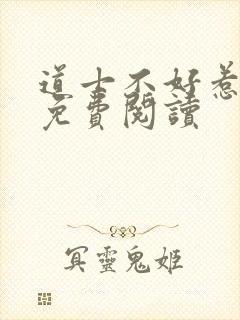 道士不好惹
免費閱讀
冥靈鬼姬